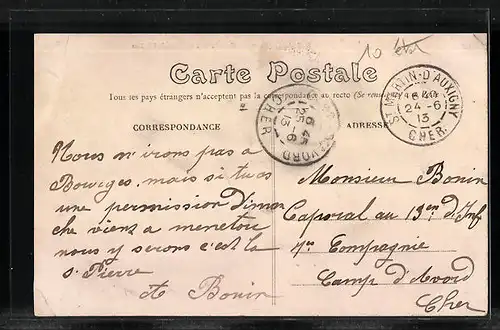 10 état
Carte Postale
Tous ses pays étrangers n'acceptent pas la correspondance au recto (Se rens
CORRESPONDANCE
ADRESSE
ST MARTIN-D'AUXIGNY
16 40
24 -6
13
CHER
6 45
25 -6
13
CHER
Nous n'irons pas a
Bourges, mais si tu as
une permission diman
che viens a menetou
nous y serons c'est la
St Pierre
A Bonin
Monsieur Bonin
Caporal au 13em d'Inf
4em Compagnie
Camp d'Avord
Cher